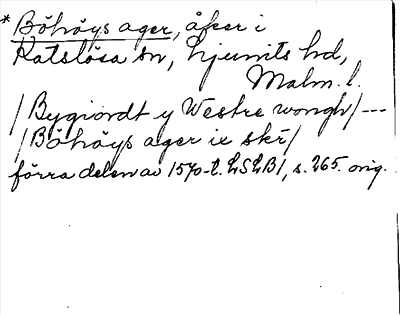 * Böhöys ager, åker i
Katslösa sn, Ljunits hd,
Malm. l.
/Bygiordt y Westre wongh/ ---
/Böhöys ager ix skr/
förra delen av 1570-t. LSLB1, s. 265. orig.